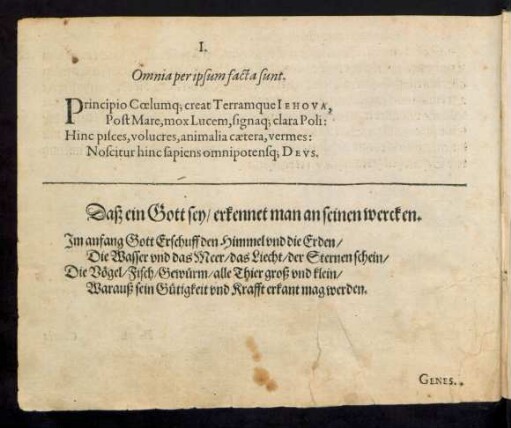 I.
Omnia per ipsum facta sunt.
Principio Cœlumq; creat Terramque IEHOVA,
Poſt Mare, mox Lucem, ſignaq; clara Poli:
Hinc piſces, volucres, animalia cætera, vermes:
Noſcitur hinc ſapiens omnipotenſq; DEVS.
Daß ein Gott ſey/ erkennet man an ſeinen wercken.
Im anfang Gott Erſchuff den Himmel vnd die Erden/
Die Waſſer vnd das Meer/ das Liecht/ der Sternen ſchein/
Die Vögel/ Fiſch/ Gewürm/ alle Thier groß vnd klein/
Warauß ſein Gütigkeit vnd Krafft erkant mag werden.
GENES..